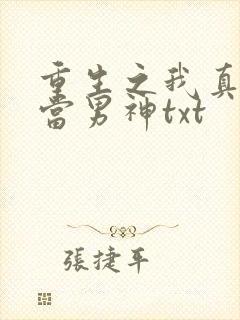 重生之我真
当男神txt
張捷平